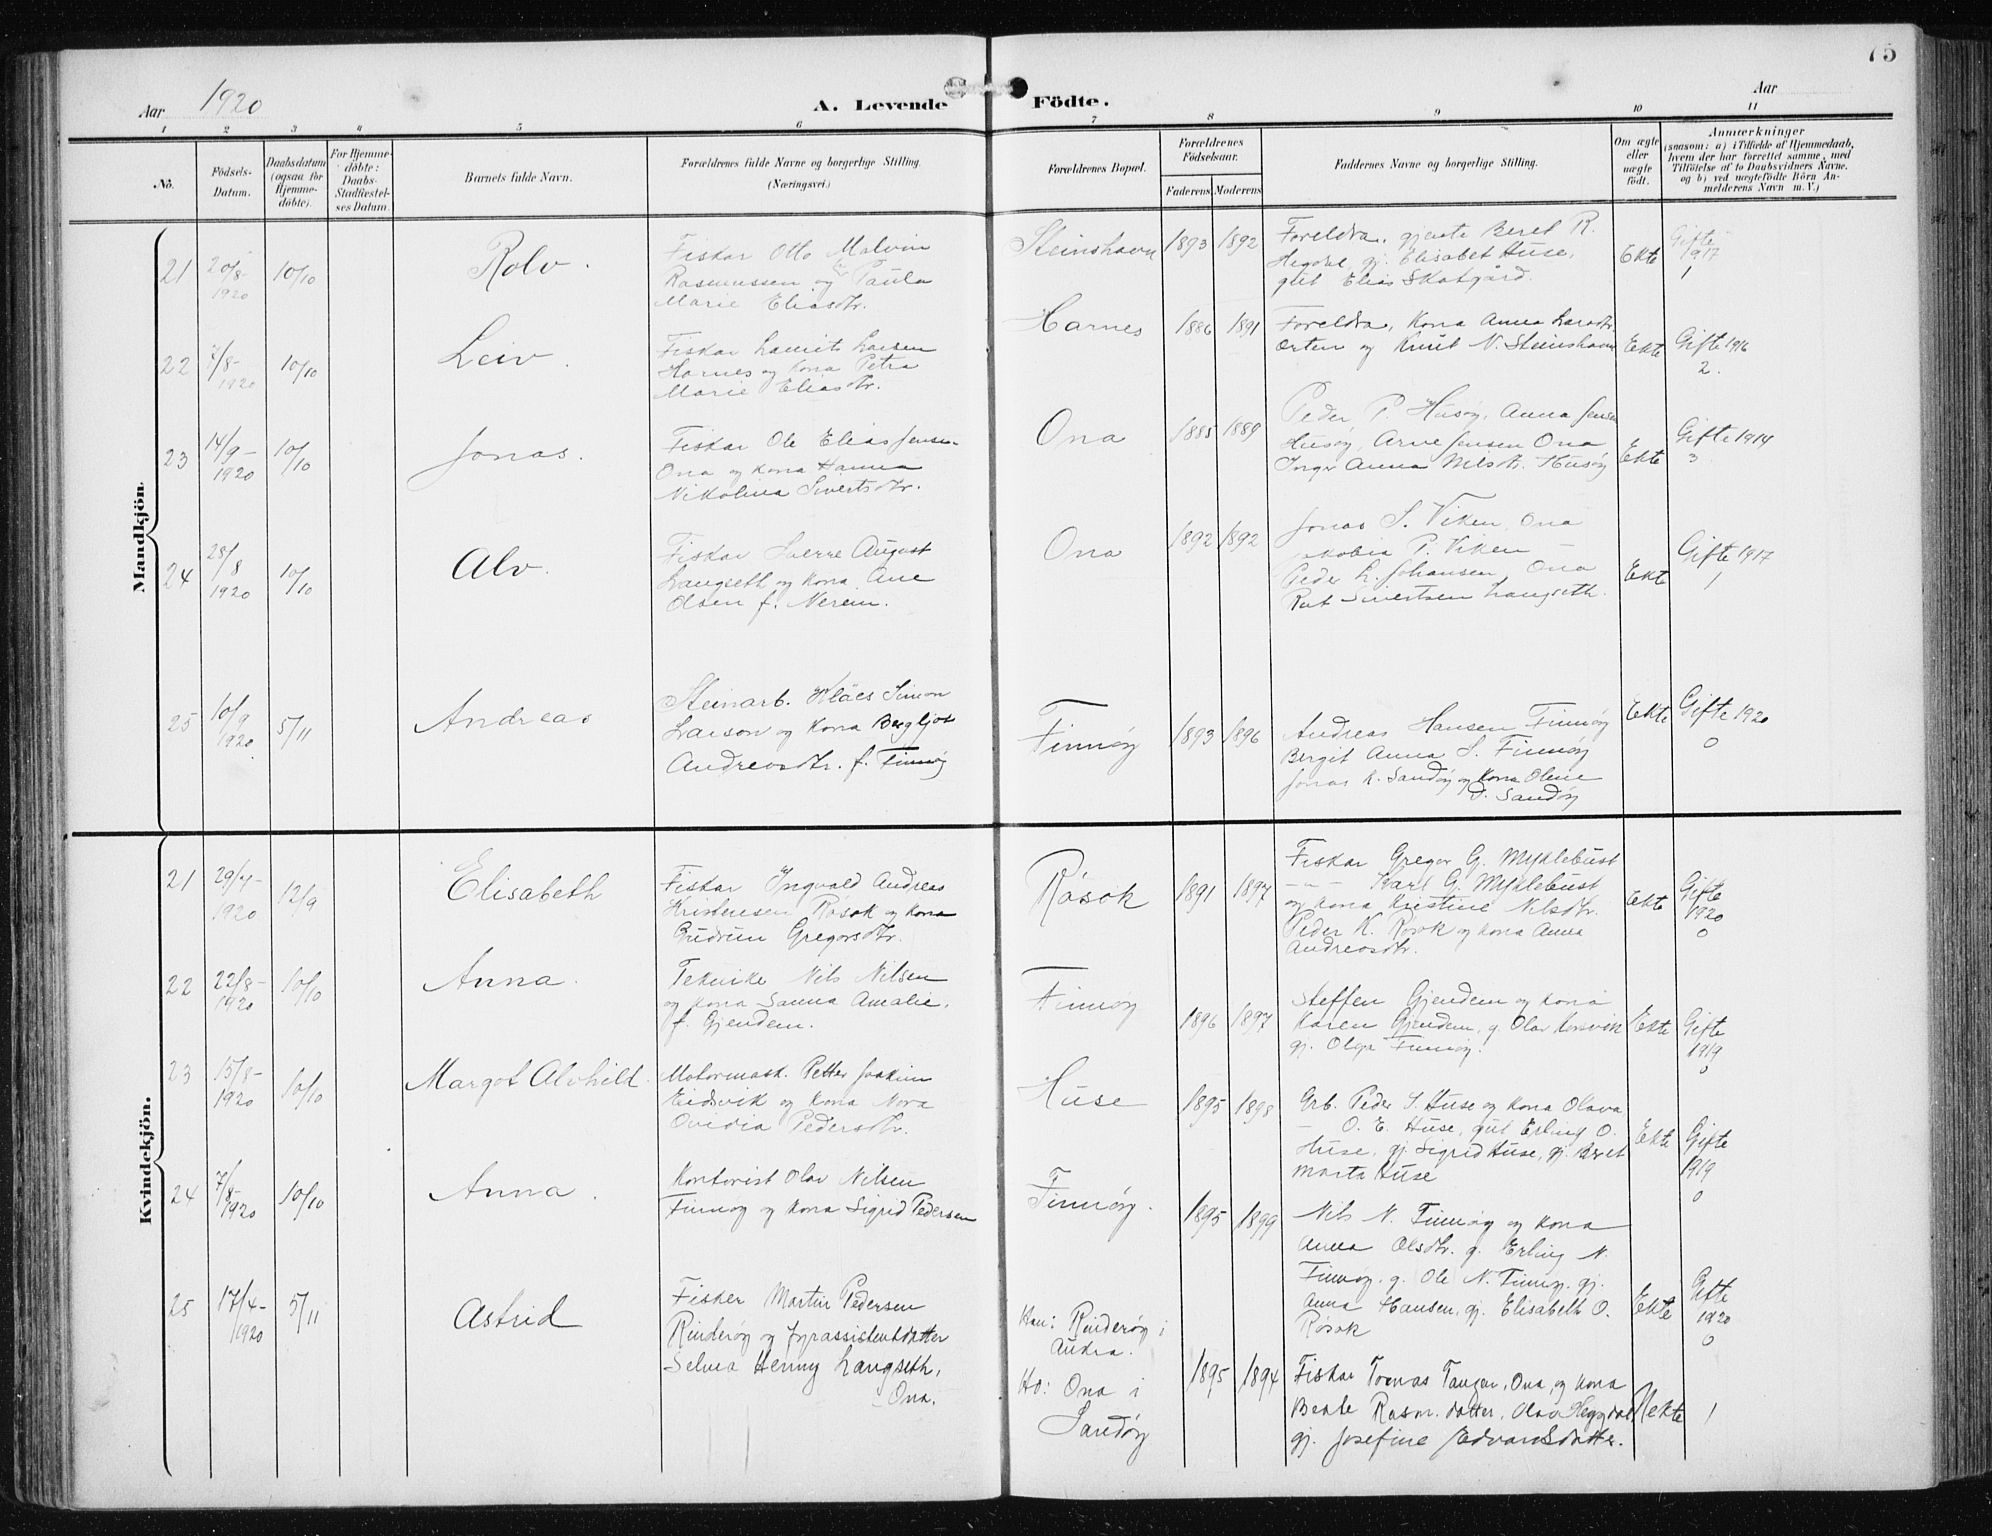 75
Aar 1920
A. Levende Födte.
Aar
1 2 3 4 5 6 7 8 9 10 11
No.
Födsels-Datum.
Daabsdatum (ogsaa for Hjemme-döbte).
For Hjemme-döbte: Daabs-Stadfæstel-ses Datum.
Barnets fulde Navn.
Forældrenes fulde Navne og borgerlige Stilling.
(Næringsvei.)
Forældrenes Bopæl.
Forældrenes Födselsaar.
Faderens Moderens
Faddernes Navne og borgerlige Stilling.
Om ægte eller uægte födt.
Anmærkninger
(saasom: a) i Tilfælde af Hjemmedaab,
hvem der har forrettet samme, med
Tilföielse af to Daabsvidners Navne.
og b) ved uægtefödte Börn An-
melderens Navn m. V.)
Mandkjön.
21 20/8 1920 10/10 Rolv.
Fiskar Otto Malvin
Rasmussen og Paula
Marie Eliasdtr.
Steinshavn 1893 1892
Foreldra, gjente Beret R.
Hegdal, gj. Elisabet Huse,
gut Elias Skotgård.
Ekte
Gifte 1917
1
22 7/8 - 1920 10/10 Leiv.
Fiskar Laurits Larsen
Harnes og kona Petra
Marie Eliasdtr.
Harnes 1886 1891
Foreldra, Kona Anna Larsdtr.
Orten og Knut N. Steinshavn
Ekte
Gifte 1916
2.
23 14/9 - 1920 10/10 Jonas.
Fiskar Ole Elias Jensen
Ona og kona Hanna
Nikolina Sivertsdtr.
Ona 1885 1889
Peder P. Husøy, Anna Jensen
Husøy, Arne Jensen Ona
Inger Anna Nilsdtr. Husøy
Ekte
Gifte 1914
3
24 28/8 1920 10/10 Alv.
Fiskar Sverre August
Langseth og kona Ane
Olsen f. Nerem.
Ona 1892 1892
Jonas S. Viken, Ona
Jakobia P. Viken —
Peder L. Johansen, Ona
Rut Sivertsen Langseth.
Ekte
Gifte 1917
1
25 10/9 1920. 5/11 Andreas
Steinarb. Klaes Simon
Larson og kona Bergljot
Andreasdtr. f. Finnøy
Finnøy 1893 1896
Andreas Hansen Finnøy
Bergit Anna S. Finnøy
Jonas K. Sandøy og kona Oline
Sandøy
Ekte
Gifte 1920
0
Kvindekjön.
21 29/7 - 1920 12/9 Elisabeth
Fiskar Ingvald Andreas
Kristensen Røsok og kona
Gudrun Gregorsdtr.
Røsok 1891 1897
Fiskar Gregor G. Myklebust
— „ — Karl G. Myklebust
og kona Kristine Nilsdtr.
Peder K. Røsok og kona Anna
Andreasdtr.
Ekte
Gifte
1920
0
22 22/8 - 1920 10/10 Anna.
Teknike Nils Nilsen
og kona Sanna Amalie,
f. Gjendem.
Finnøy 1896 1897
Steffen Gjendem og kona
Karen Gjendem, g. Olav Korsvik
gj. Olga Finnøy.
Ekte
Gifte
1919
0
23 15/8 - 1920 10/10 Margot Alvhild.
Motormask. Petter Joakim
Eidsvik og kona Nora
Ovidia Pedersdtr.
Huse 1895 1898
Grb. Peder S. Huse og kona Olava
— O. E. Huse, gut Erling O.
Huse, gj. Sigrid Huse, gj. Beret
Marta Huse
Ekte
Gifte
1919
0
24 7/8 - 1920 10/10 Anna.
Kontorist Olav Nilsen
Finnøy og kona Sigrid Pedersen
Finnøy. 1895 1899
Nils N. Finnøy og kona
Anna Olsdtr. g. Erling N.
Finnøy, g. Ole N. Finnøy, gj.
Anna Hansen, gj. Elisabeth O.
Røsok
Ekte
Gifte
1920
0
25 17/4 - 1920 5/11 Astrid
Fisker Martin Pedersen
Rinderøy og fyrassistentdatter
Selma Henny Langseth,
Ona.
Han: Rinderøy i
Aukra.
Ho: Ona i
Sandøy
1895 1894
Fiskar Tomas Tangen, Ona, og kona
Beate Rasm. datter, Olav Heggdal
gj. Josefine Edvardsdatter.
Uekte
1